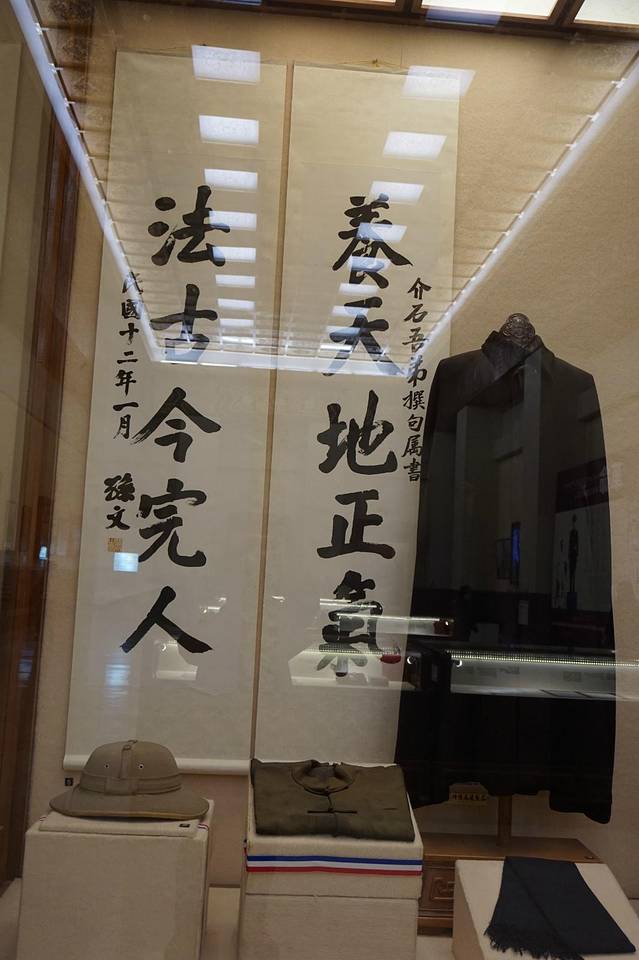 養天地正氣
介石吾弟撰句属書
法古今完人
民國十二年一月
孫文